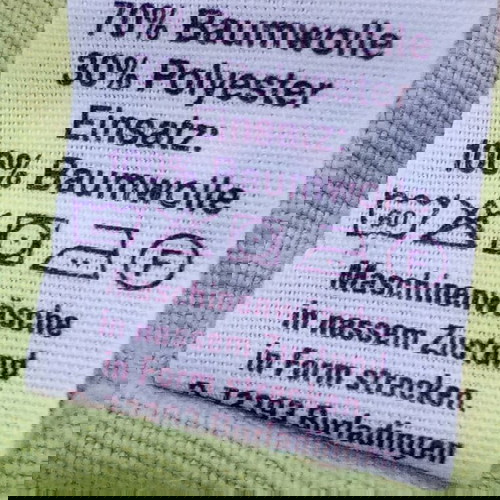 70% Baumwolle
30% Polyester
Einsatz:
100% Baumwolle
F
Maschinenwäsche
in nassem Zustand
in Form strecken
Burladingen